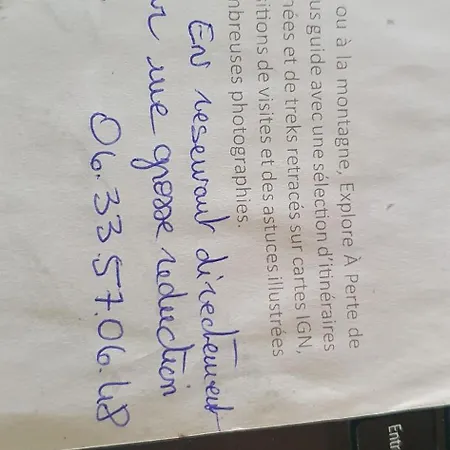 ou à la montagne, Explore À Perte de
us guide avec une sélection d'itinéraires
nées et de treks retracés sur cartes IGN,
sitions de visites et des astuces illustrées
mbreuses photographies.
En reservant directement
une grosse reduction
06.33.57.06.48
Entr